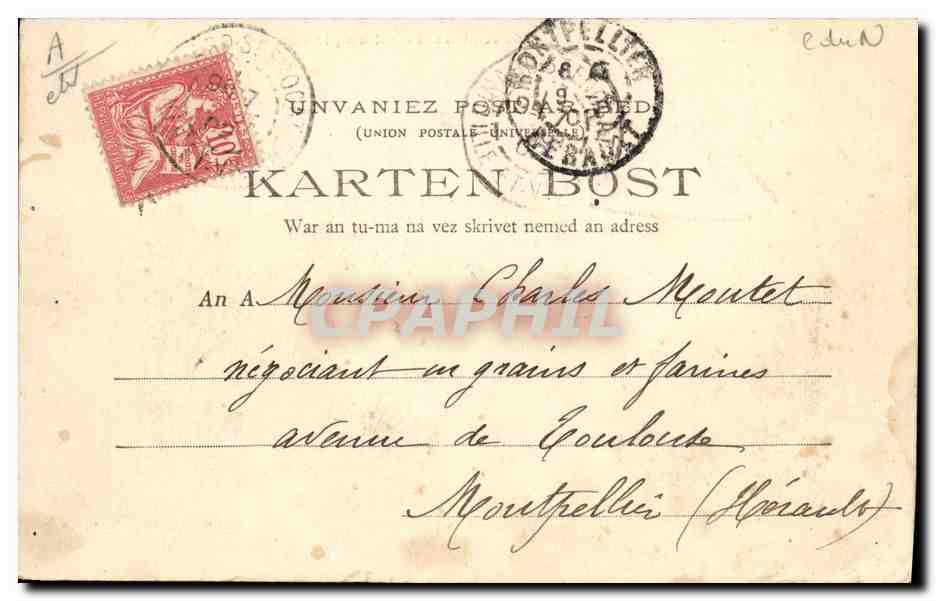 A
UNVANIEZ POST AR BED
(UNION POSTALE UNIVERSELLE)
KARTEN BOST
War an tu-ma na vez skrivet nemed an adress
An A. Monsieur Charles Moutet
négociant en grains et farines
avenue de Toulouse
Montpellier (Hérault)
MONTPELLIER
HERAULT
10
CPAPHIL